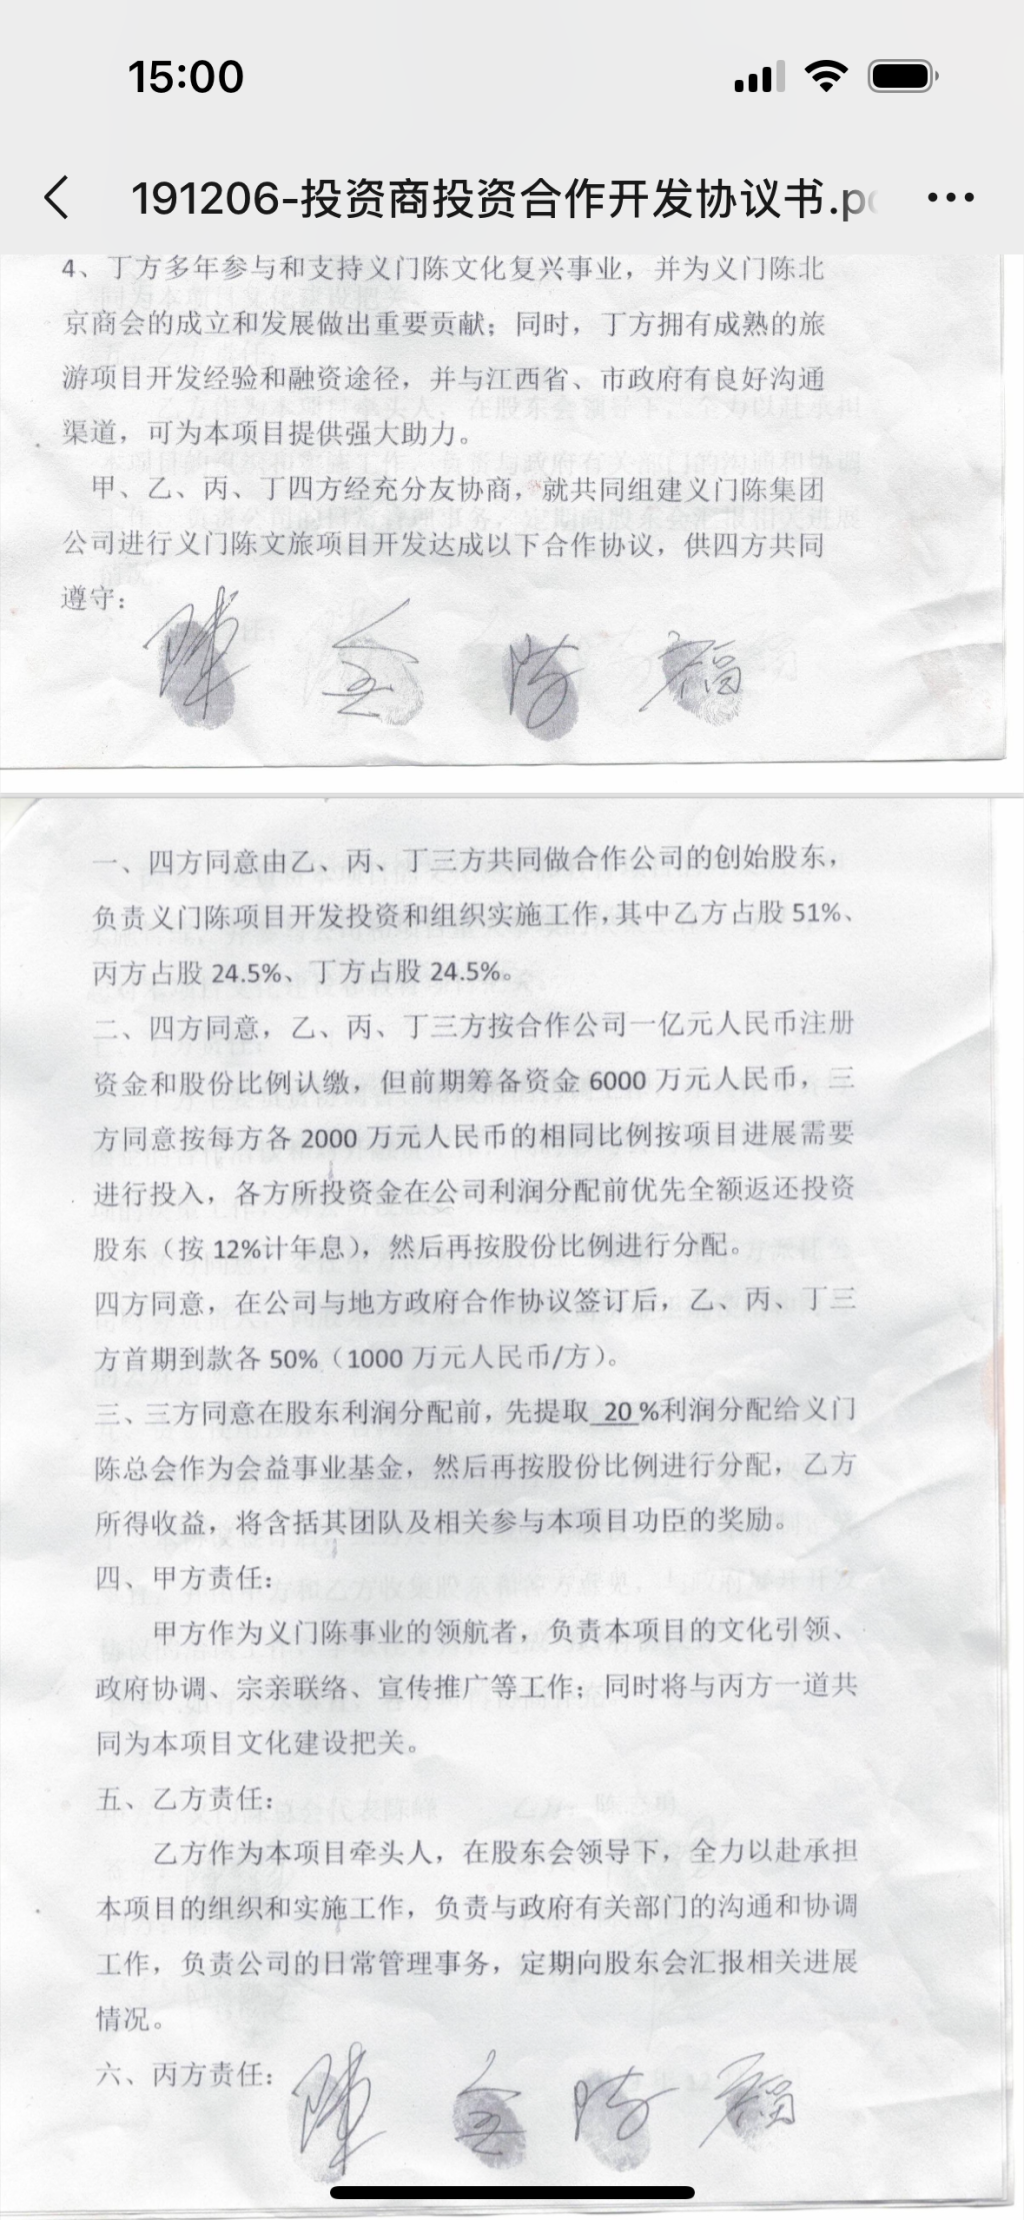 15:00
191206-投资商投资合作开发协议书.p
4、丁方多年参与和支持义门陈文化复兴事业，并为义门陈北
京商会的成立和发展做出重要贡献；同时，丁方拥有成熟的旅
游项目开发经验和融资途径，并与江西省、市政府有良好沟通
渠道，可为本项目提供强大助力。
甲、乙、丙、丁四方经充分友协商，就共同组建义门陈集团
公司进行义门陈文旅项目开发达成以下合作协议，供四方共同
遵守：
一、四方同意由乙、丙、丁三方共同做合作公司的创始股东，
负责义门陈项目开发投资和组织实施工作，其中乙方占股 51%、
丙方占股 24.5%、丁方占股 24.5%。
二、四方同意，乙、丙、丁三方按合作公司一亿元人民币注册
资金和股份比例认缴，但前期筹备资金 6000 万元人民币，三
方同意按每方各 2000 万元人民币的相同比例按项目进展需要
进行投入，各方所投资金在公司利润分配前优先全额返还投资
股东（按 12%计年息），然后再按股份比例进行分配。
四方同意，在公司与地方政府合作协议签订后，乙、丙、丁三
方首期到款各 50%（1000 万元人民币/方）。
三、三方同意在股东利润分配前，先提取 20 %利润分配给义门
陈总会作为会益事业基金，然后再按股份比例进行分配，乙方
所得收益，将含括其团队及相关参与本项目功臣的奖励。
四、甲方责任：
甲方作为义门陈事业的领航者，负责本项目的文化引领、
政府协调、宗亲联络、宣传推广等工作；同时将与丙方一道共
同为本项目文化建设把关。
五、乙方责任：
乙方作为本项目牵头人，在股东会领导下，全力以赴承担
本项目的组织和实施工作，负责与政府有关部门的沟通和协调
工作，负责公司的日常管理事务，定期向股东会汇报相关进展
情况。
六、丙方责任：